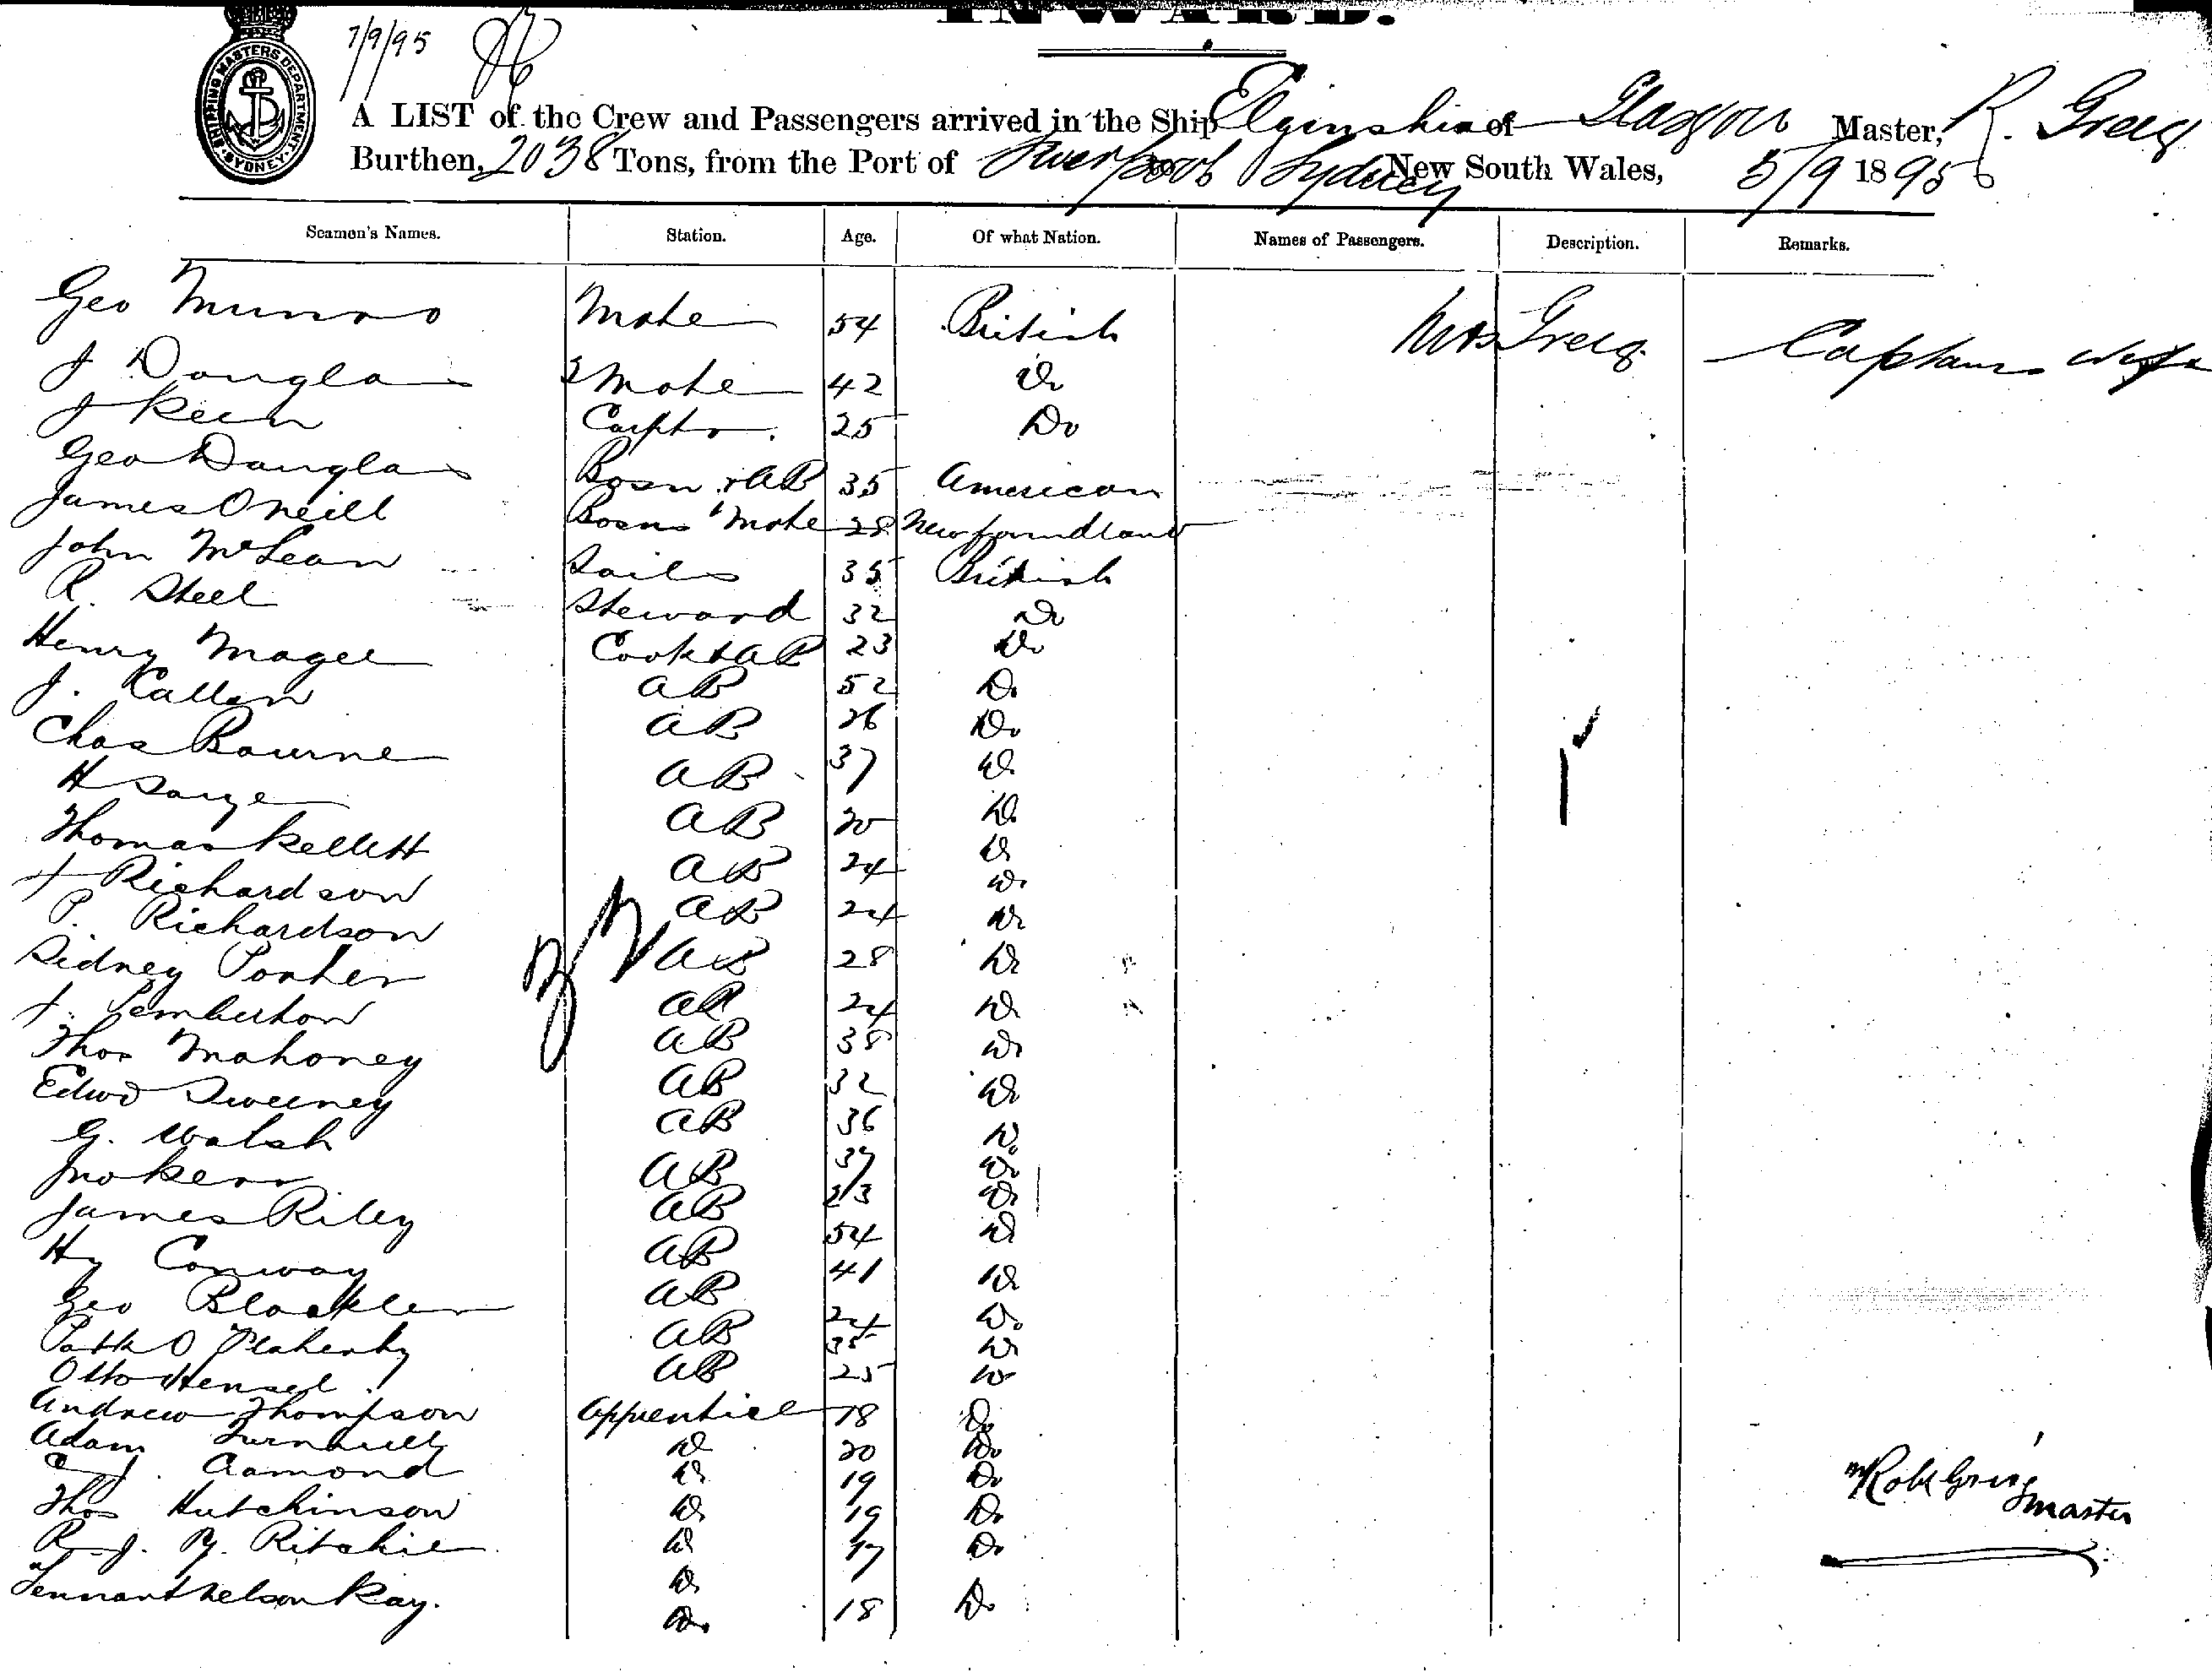 INWARD.
7/9/95
SHIPPING MASTERS DEPARTMENT SYDNEY
A LIST of the Crew and Passengers arrived in the Ship Elginshire of Glasgow Master, R. Greig
Burthen, 2038 Tons, from the Port of Liverpool to Sydney New South Wales, 5/9 1895
Seamen's Names. Station. Age. Of what Nation. Names of Passengers. Description. Remarks.
Geo Munro Mate 54 British Mrs Greig Captains Wife
J Douglas 2 Mate 42 Do
J Keen Carptr. 25 Do
Geo Douglas Bosn & AB 35 American
James O Neill Bosns Mate 28 Newfoundland
John McLean Sails 35 British
R. Steel Steward 32 Do
Henry Magee Cook & AB 23 Do
J. Callen AB 52 Do
Chas Bourne AB 26 Do
H AB 37 Do
Thomas Kellett AB 20 Do
J Richardson AB 24 Do
P. Richardson AB 24 Do
Sidney Porter AB 28 Do
J. Pemberton AB 24 Do
Thos Mahoney AB 38 Do
Edwd Sweeney AB 32 Do
G. Walsh AB 36 Do
Jno Kerr AB 37 Do
James Riley AB 23 Do
Hy Conway AB 54 Do
Geo Blackler AB 41 Do
Patk O Flaherty AB 24 Do
Otto Hensel AB 35 Do
AB 25 Do
Andrew Thompson Apprentice 18 Do
Adam Turnbull Do 20 Do
C. J. Do 19 Do
Thos Hutchinson Do 19 Do
R. J. Ritchie Do 17 Do
Tennant Nelson Kay. Do 18 Do
Do
Robt Greig
Master